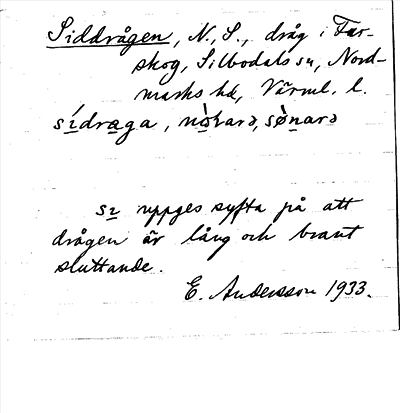 Siddrågen, N., S., dråg i Tar-
skog, Silbodals sn, Nord-
marks hd, Värml. l.
sídræga, nòɹarə, sø̀narə
sı uppges syfta på att
drågen är lång och brant
sluttande.
E. Andersson 1933.